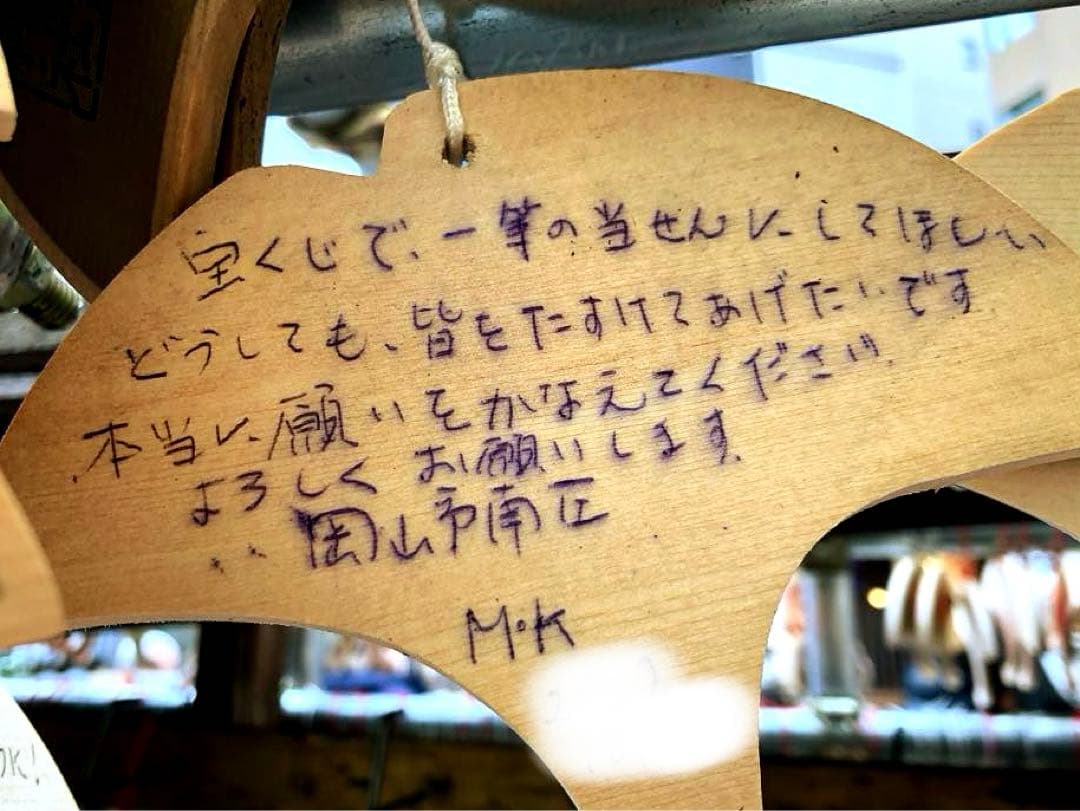 宝くじで、一等の当せんにしてほしい
どうしても、皆をたすけてあげたいです
本当に願いをかなえてください。
よろしくお願いします。
岡山市南区
M・K
OK!